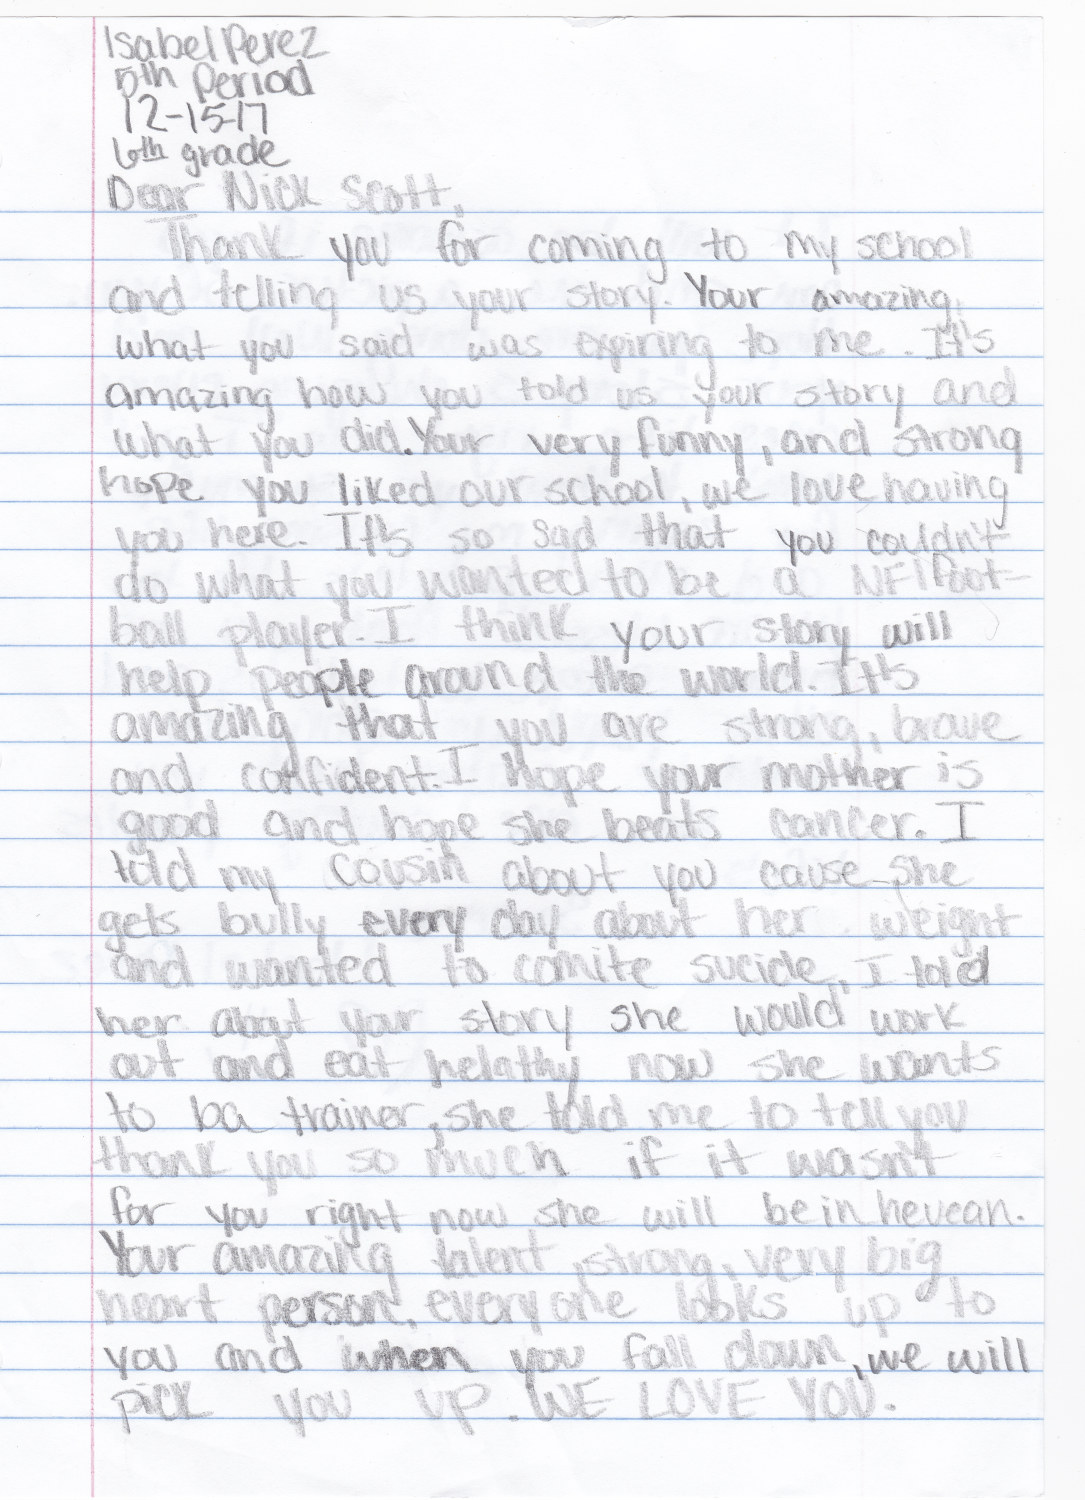 Isabel Perez
5th Period
12-15-17
6th grade
Dear Nick Scott,
Thank you for coming to my school
and telling us your story. Your amazing,
what you said was expiring to me. It's
amazing how you told us your story and
what you did. Your very funny, and strong
hope you liked our school, we love having
you here. It's so sad that you couldn't
do what you wanted to be a NFl foot-
ball player. I think your story will
help people around the world. It's
amazing that you are strong, brave
and confident. I hope your mother is
good and hope she beats cancer. I
told my cousin about you cause she
gets bully every day about her weight
and wanted to comite sucide, I told
her about your story she would work
out and eat helathy now she wants
to ba trainer, she told me to tell you
thank you so much if it wasn't
for you right now she will be in hevean.
Your amazing talent, strong, very big
heart person, everyone looks up to
you and when you fall down, we will
pick you up. WE LOVE YOU.